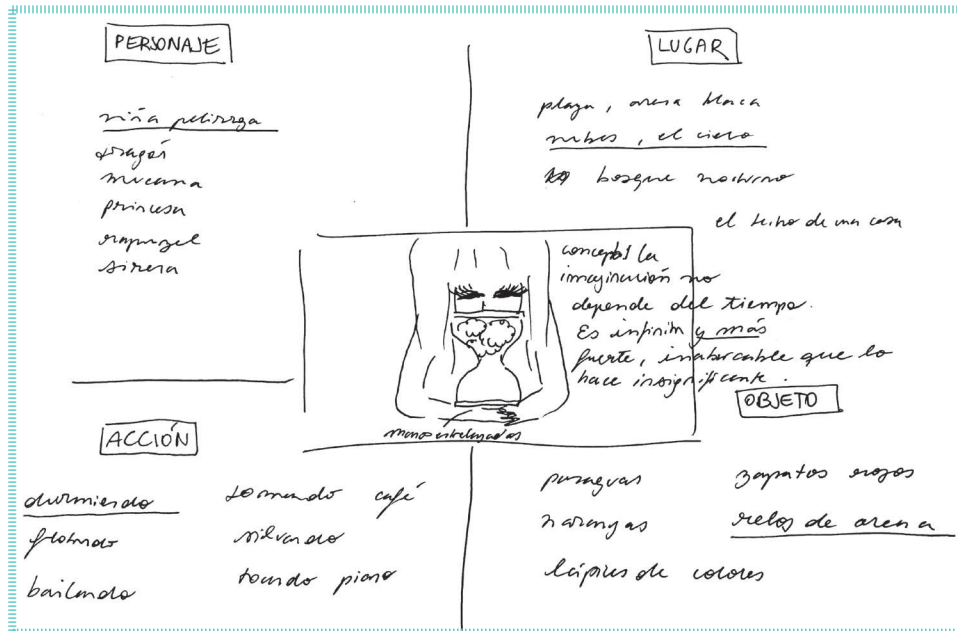 PERSONAJE
niña pelirroja
dragón
mucama
princesa
rapunzel
sirena
LUGAR
playa, arena blanca
nubes, el cielo
bosque nocturno
el techo de una casa
concepto: la
imaginación no
depende del tiempo.
Es infinita y más
fuerte, inabarcable que lo
hace insignificante.
manos entrelazadas
ACCIÓN
durmiendo
flotando
bailando
tomando café
silvando
tocando piano
OBJETO
paraguas
naranjas
lápices de colores
zapatos rojos
reloj de arena